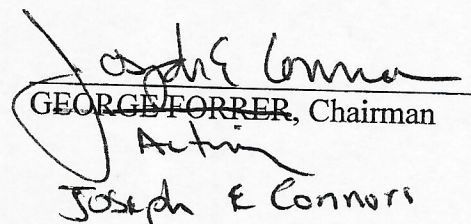 Joseph E Connor
GEORGE FORRER, Chairman
Acting
Joseph E Connors